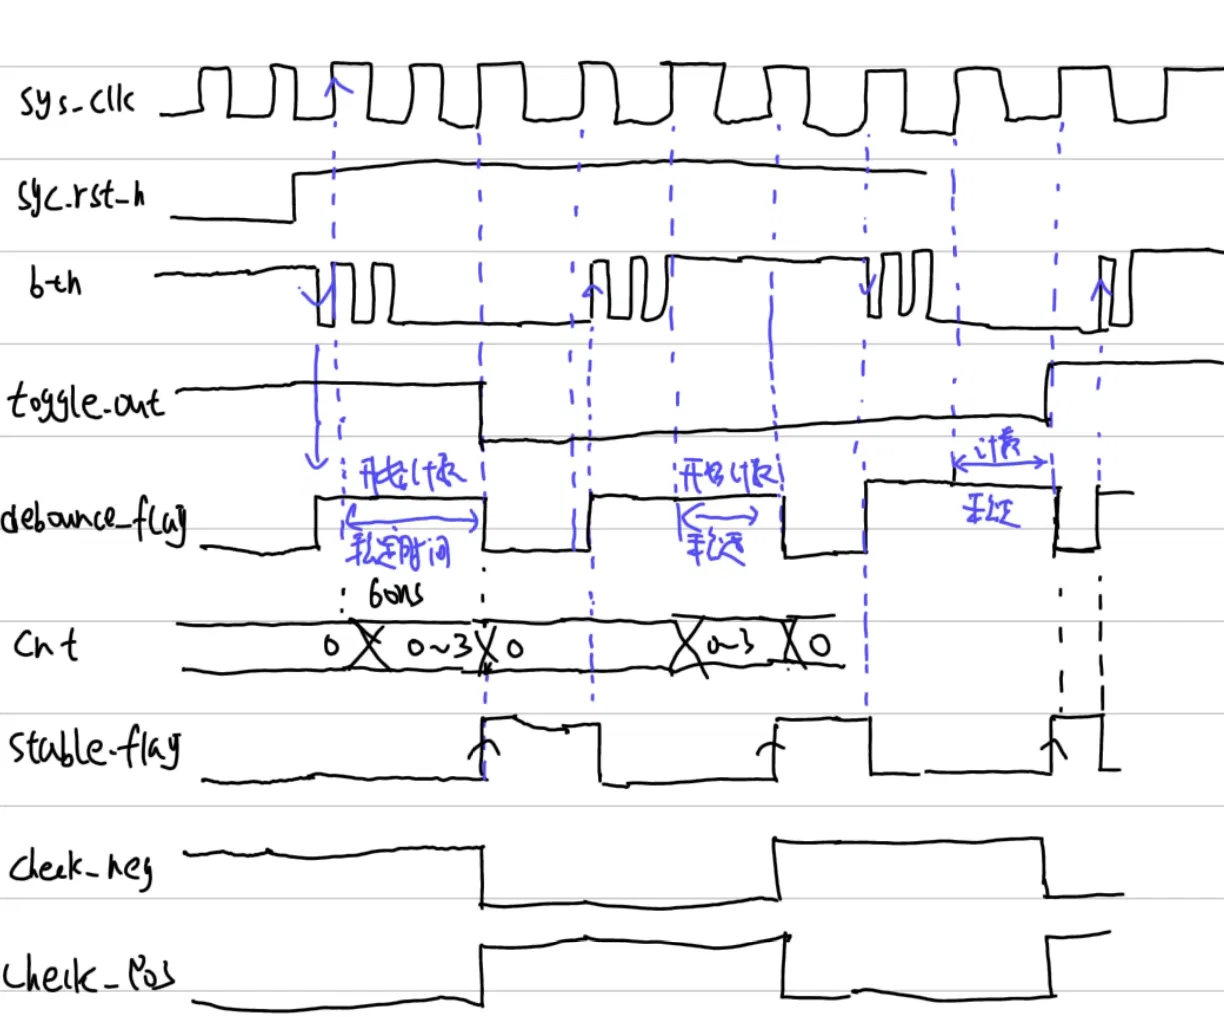 sys_clk
syc.rst_h
b-th
toggle_out
计数
开始计数
开始计数
debounce_flag
稳定时间
稳定
稳定
60ns
Cnt
0
0~3
0
0~3
0
Stable-flag
Check_neg
Check_Pos